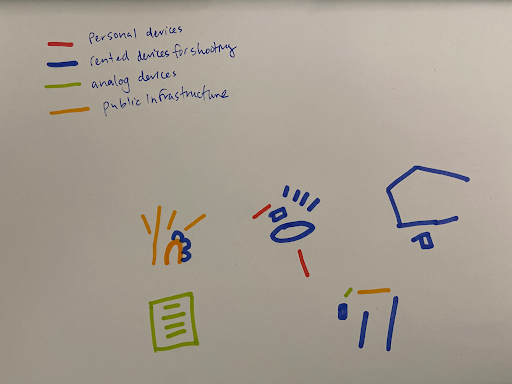 personal devices
rented devices for shooting
analog devices
public infrastructure